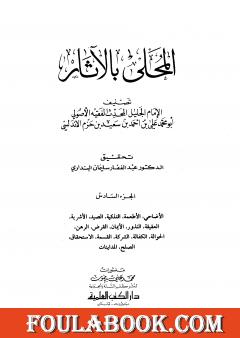 المحلى بالآثار
تصنيف
الإمام الجليل المحدث الفقيه الأصولي
أبو محمد علي بن أحمد بن سعيد بن حزم الأندلسي
تحقيق
الدكتور عبد الغفار سليمان البنداري
الجزء السادس
الأضاحي، الأطعمة، التذكية، الصيد، الأشربة،
العقيقة، النذور، الأيمان، القرض، الرهن،
الحوالة، الكفالة، الشركة، القسمة، الاستحقاق،
الصلح، المداينات
منشورات
محمد علي بيضون
دار الكتب العلمية
FOULABOOK.COM